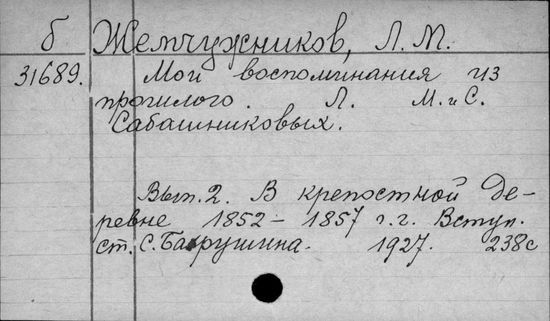 б Жемчужников, Л. М.
31689. Мои воспоминания из
прошлого. Л. М. и С.
Сабашниковых.
Вып. 2. В крепостной де-
ревне 1852 - 1857 г.г. Вступ.
ст. С. Бахрушина. 1927. 238с